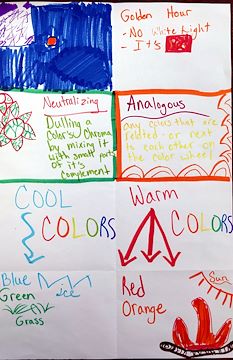 Golden Hour
- No White Light
- It's RED
Neutralizing
Dulling a
color's Chroma
by mixing it
with small parts
of it's
complement
Analogous
any colors that are
related or next
to each other on
the color wheel
COOL
COLORS
Warm
COLORS
Blue
ice
Green
Grass
Red
Orange
Sun